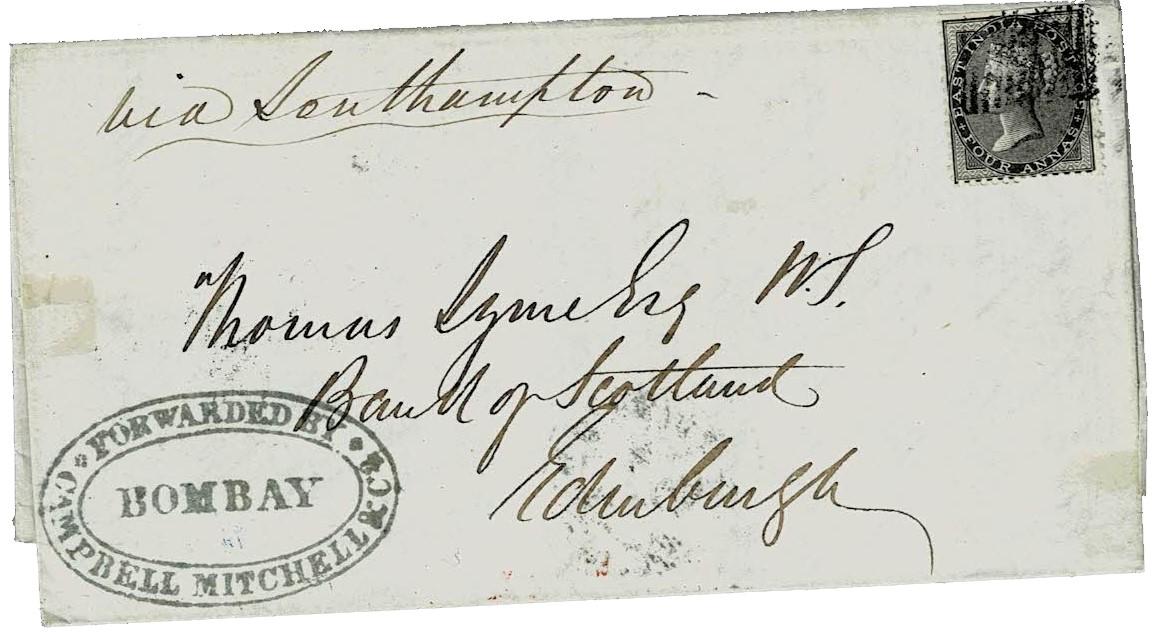 via Southampton -
EAST INDIA POSTAGE
FOUR ANNAS
Thomas Syme Esq W.S.
Bank of Scotland
Edinburgh
FORWARDED BY
CAMPBELL MITCHELL & Co.
BOMBAY